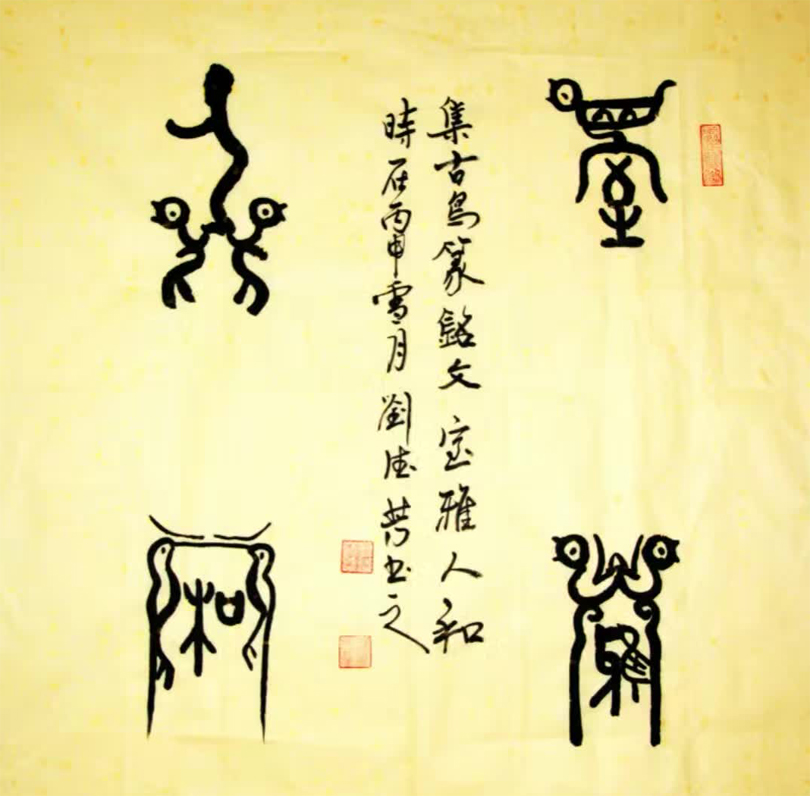 室
雅
集古鳥篆銘文室雅人和
時在丙申雪月劉德芳书之
人
和